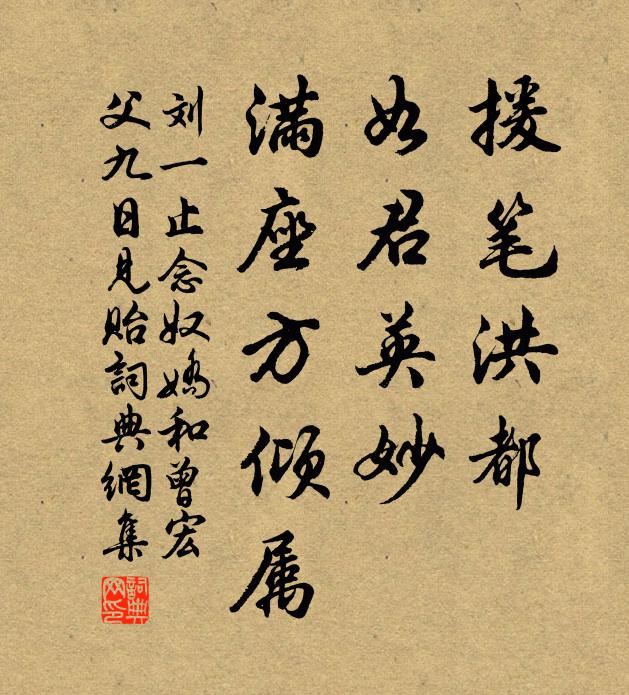 援笔洪都
如君英妙
满座方倾属
刘一止念奴娇和曾宏
父九日见贻词典網集
詞典網印